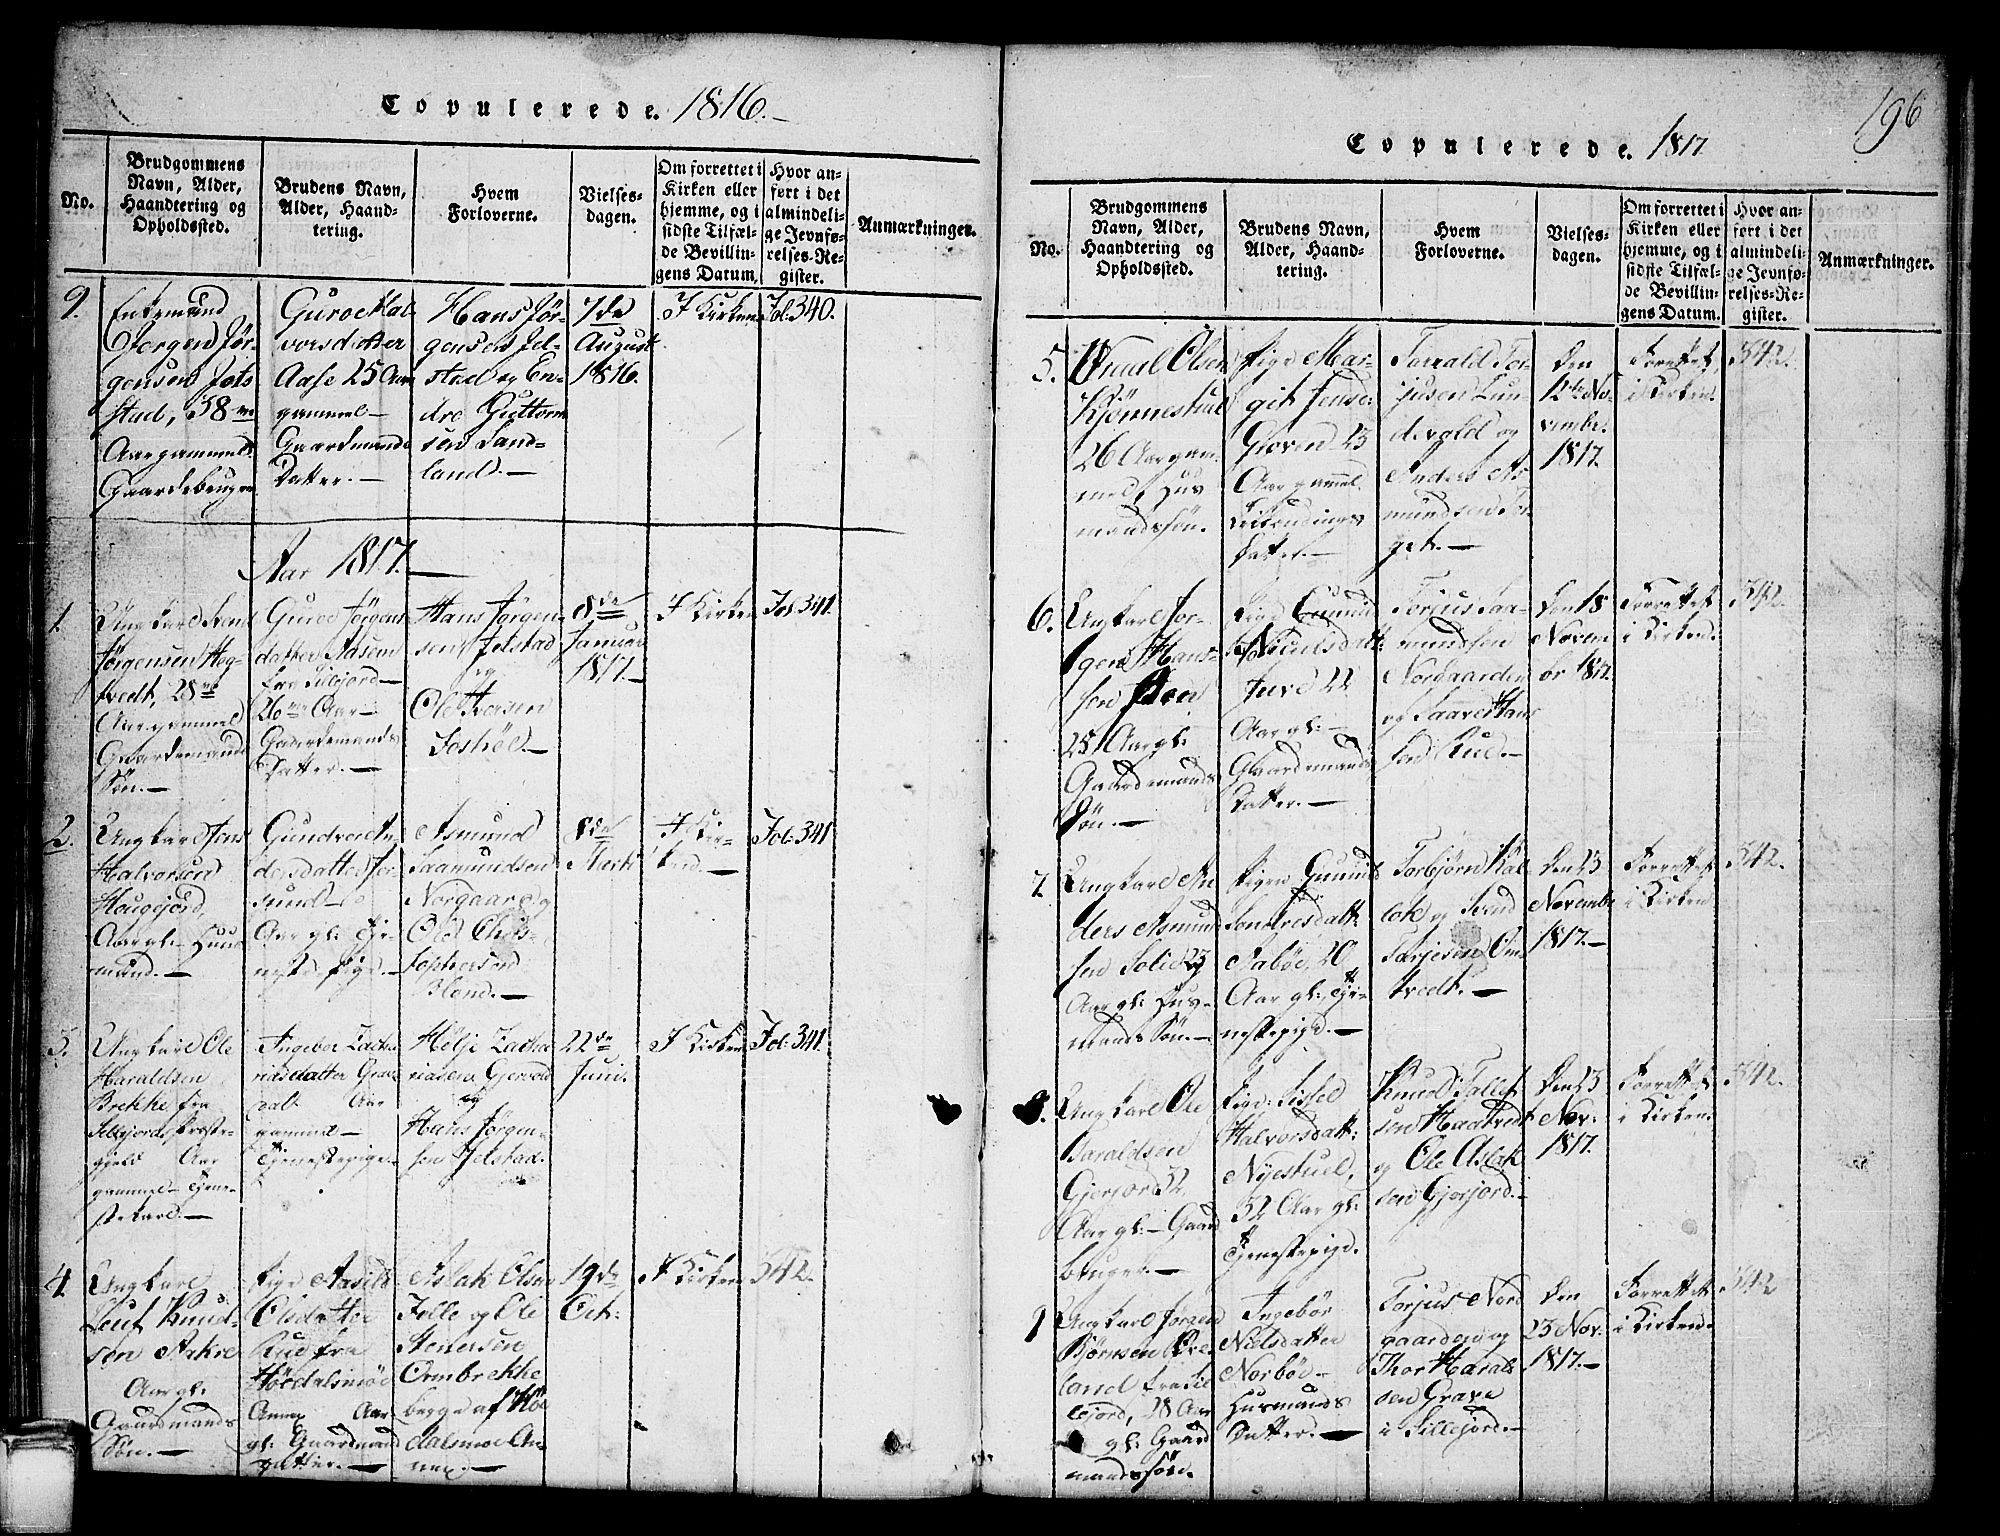 Copulerede. 1816.
No.
Brudgommens
Navn, Alder,
Haandtering og
Opholdssted.
Brudens Navn,
Alder, Haand-
tering.
Hvem
Forloverne.
Vielses-
dagen.
Om forrettet i
Kirken eller
hjemme, og i
sidste Tilfæl-
de Bevillin-
gens Datum.
Hvor an-
ført i det
almindeli-
ge Jevnfø-
relses-Re-
gister.
Anmærkninger.
9.
Enkemand
Jørgen Jør-
gensen
stad, 58
Aar gammel
Gaardebruger
Guroe Hal-
vorsdatter
Aase 25 Aar
gammel
Gaardmands
Datter.
Hans Jør-
gensen Jel-
stad og En-
dre Guttorm
sen Sand-
land.
7de
August
1816.
I Kirken
Fol: 340.
Aar 1817.
1.
Ungkarl
Jørgensen Heg-
tvedt, 28
Aar gammel
Gaardemands
Søn.
Guroe Jørgens
datter Aasen
fra Sillejord
26 Aar
Gaardemands
Datter.
Hans Jørgen-
sen Jelstad
og
Ole Iversen
8de
Januar
1817.
I Kirken
Fol: 341.
2.
Ungkarl Jens
Halvorsen
Haugejord,
Aar gl. Huus
mand.
Gundroe An-
dersdatter
sund
Aar gl: Tje-
neste Pige.
Asmund
Saamundsen
Norgaard og
Ole Chris-
tophersen
Bland.
8de
Marti
I Kir-
ken.
Fol: 341
3.
Ungkarl Ole
Haraldsen
Brekke fra
Sillejords Præste-
gjeld Aar
gammel Tjene-
stekarl.
Ingebor Zacha
riasdatter Grave
dal Aar
gammel
Tjenestepige.
Hølje Zacha
riasen Gjervold
og
Hans Jørgen-
sen Jelstad.
22de
Juni.
I Kirken
Fol: 341.
4.
Ungkarl
Leuf Knud-
sen Aakre
Aar gl.
Gaardmands
Søn.
Pige Aasild
Olsdatter
Rue fra
Hørdalsmoe
Annex Aar
gl: Gaardmands
Datter.
Aslak Olsen
Felle og Ole
Stenersen
Ormbrekke
begge af Hør
dalsmoe An-
nex.
19de
Oct:
I Kirken
342.
196
Copulerede. 1817.
No.
Brudgommens
Navn, Alder,
Haandtering og
Opholdssted.
Brudens Navn,
Alder, Haand-
tering.
Hvem
Forloverne.
Vielses-
dagen.
Om forrettet i
Kirken eller
hjemme, og i
sidste Tilfæl-
de Bevillin-
gens Datum.
Hvor an-
ført i det
almindeli-
ge Jevnfø-
relses-Re-
gister.
Anmærkninger.
5.
Knud Olsen
Kjønnestuel
26 Aar gam-
mel, Hus
mandssøn.
Pige Mar-
git Jensd:
Groven 23
Aar gammel
Datter.
Tarrald Tor-
jusen Lun-
devold og
Anders As-
mundsen Tor-
get.
Den
12te No-
vembr.
1817.
Forrettet
i Kirken.
342.
6.
Ungkarl Jør-
gen Hans-
sen
25 Aar gl:
Gaardemands
Søn.
Pige Gunild
Nielsdatt:
Juve 22
Aar gl:
Gaardemands
Datter.
Torjus Saa-
mundsen
Norgaarden
og Saave Hans
sen Rue.
Den 18
Novem
br 1817.
Forrettet
i Kirken.
342.
7.
Ungkarl An
ders Asmund
sen Solie 23
Aar gl: Hus-
mands Søn.
Pigen Gunild
Sondresdatt:
Aabøe, 20
Aar gl: Tje-
nestepige.
Torbjørn Kal-
lok og Svend
Tarjesen Om
tvedt.
Den 23
Novembr
1817.
Forrettet
i Kirken
342.
8.
Ungkarl Ole
Haraldsen
Gjerjord 32
Aar gl: Gaard
bruger.
Pige: Sissel
Halvorsdatt:
Nyestuel,
32 Aar gl:
Tjenestepige.
Knud Tollef
sen Haatvedt
og Ole Aslak
sen Gjerjord.
Den 23
Nov:
1817.
Forrettet
i Kirken.
342.
9
Ungkarl Jørgen
Bjørnsen
land fra Sil
lejord, 28 Aar
gl: Gaard
mandssøn.
Ingebor
Nielsdatter
Norbøe
Husmands
Datter.
Torjus Nord
gaarden og
Thor Harald
sen Grave
i Sillejord.
Den
23 Nov:
1817.
Forrettet
i Kirken.
342